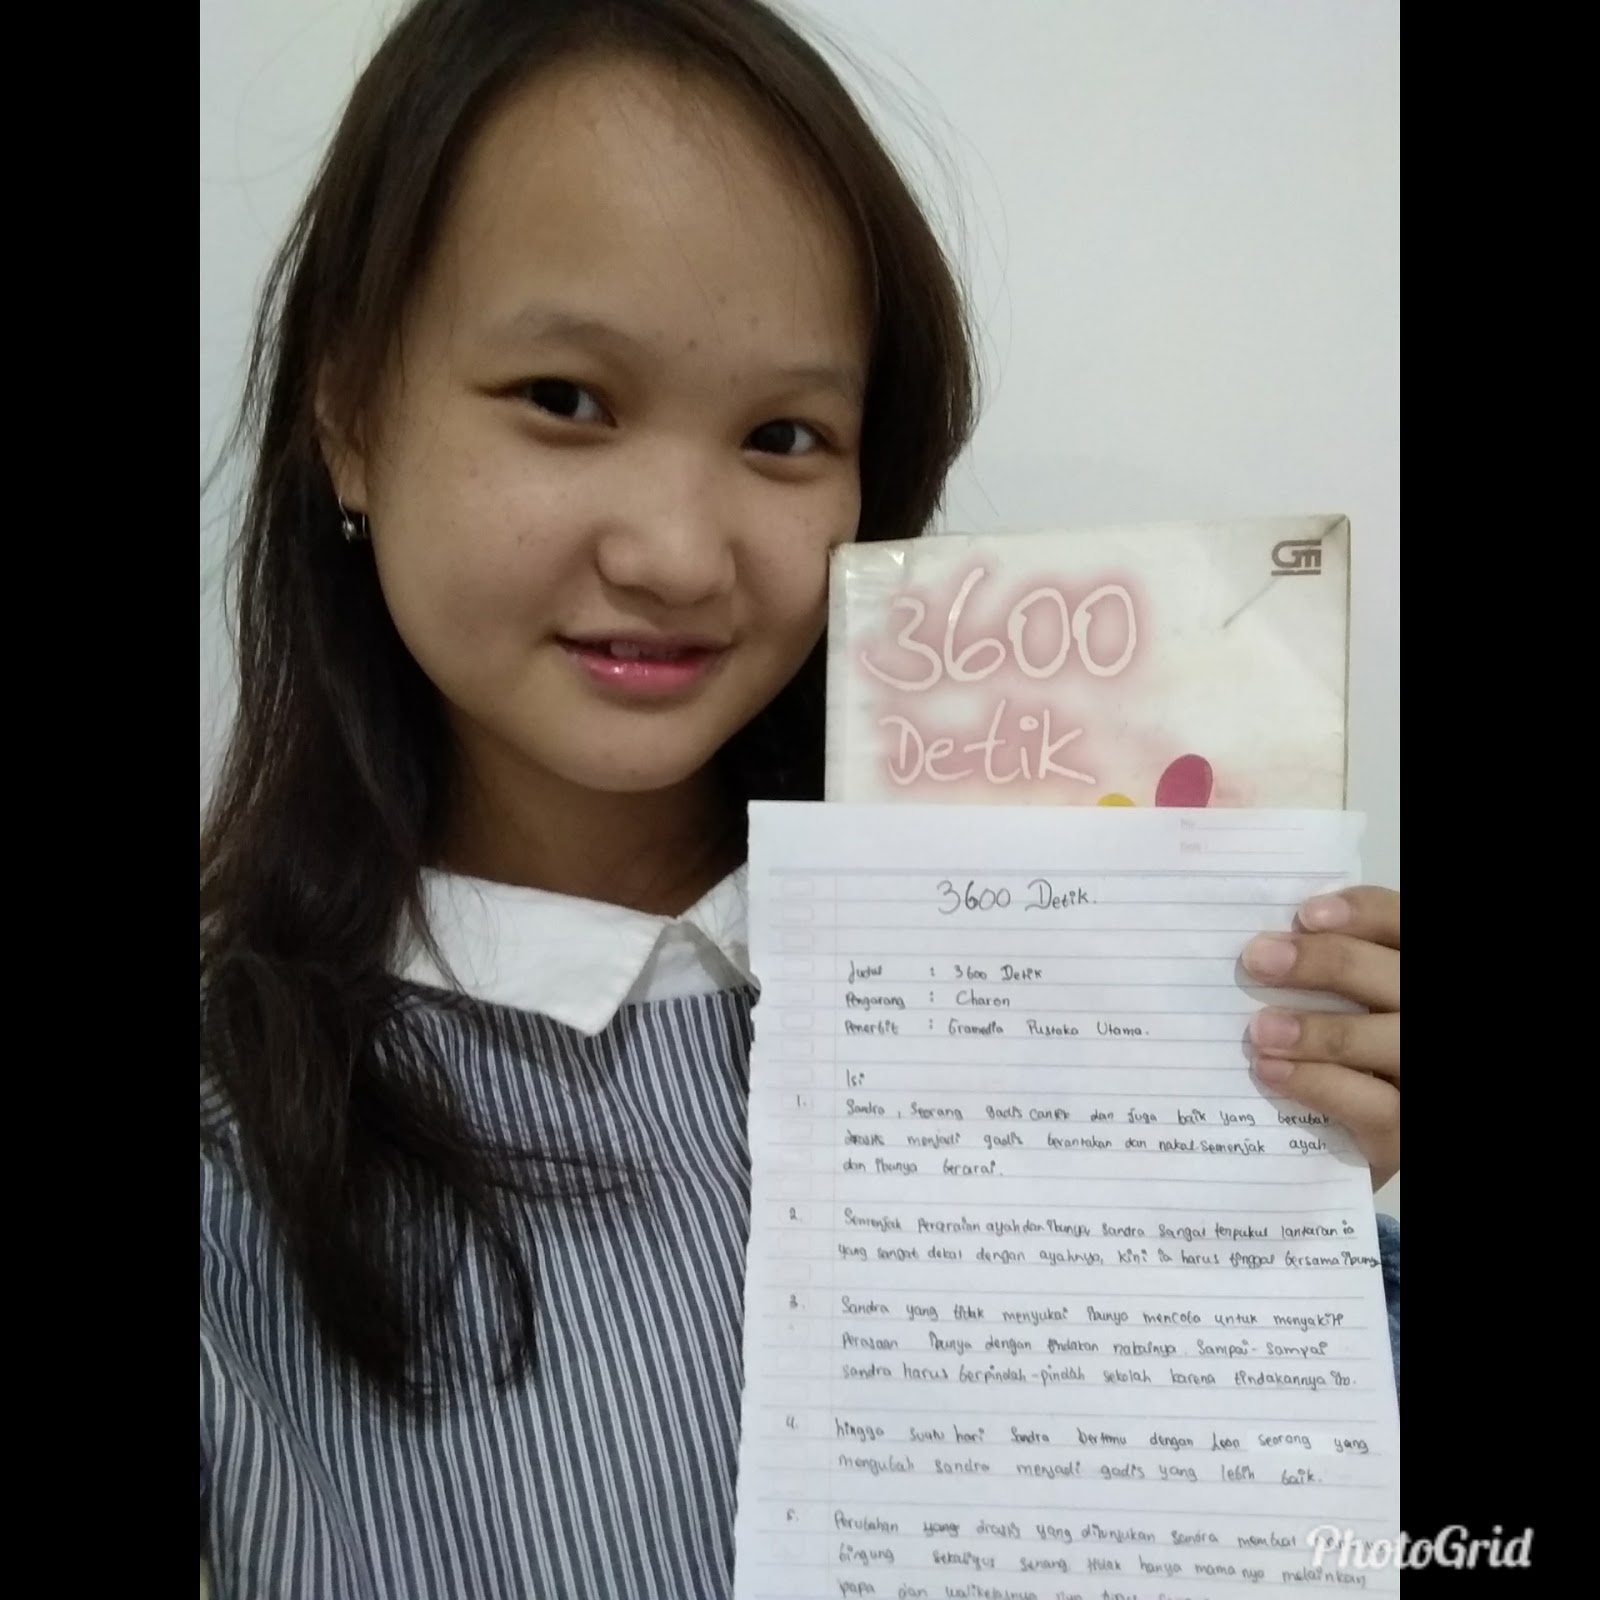 GM
3600
Detik
No
Date
3600 Detik.
Judul : 3600 Detik
Pengarang : Charon
Penerbit : Gramedia Pustaka Utama.
Isi
1. Sandra, seorang gadis cantik dan juga baik yang berubah
drastis menjadi gadis berantakan dan nakal semenjak ayah
dan ibunya berarai.
2. Semenjak peraraian ayah dan ibunya sandra sangat terpukul lantaran ia
yang sangat dekat dengan ayahnya, kini ia harus tinggal bersama ibunya
3. Sandra yang tidak menyukai ibunya mencoba untuk menyakiti
perasaan ibunya dengan tindakan nakalnya. Sampai-sampai
sandra harus berpindah-pindah sekolah karena tindakannya itu.
4. hingga suatu hari Sandra bertemu dengan Leon seorang yang
mengubah sandra menjadi gadis yang lebih baik.
5. Perubahan yang drastis yang ditunjukan sandra membuat
bingung sekaligus senang tidak hanya mama nya melainkan
papa dan walikelasnya
PhotoGrid